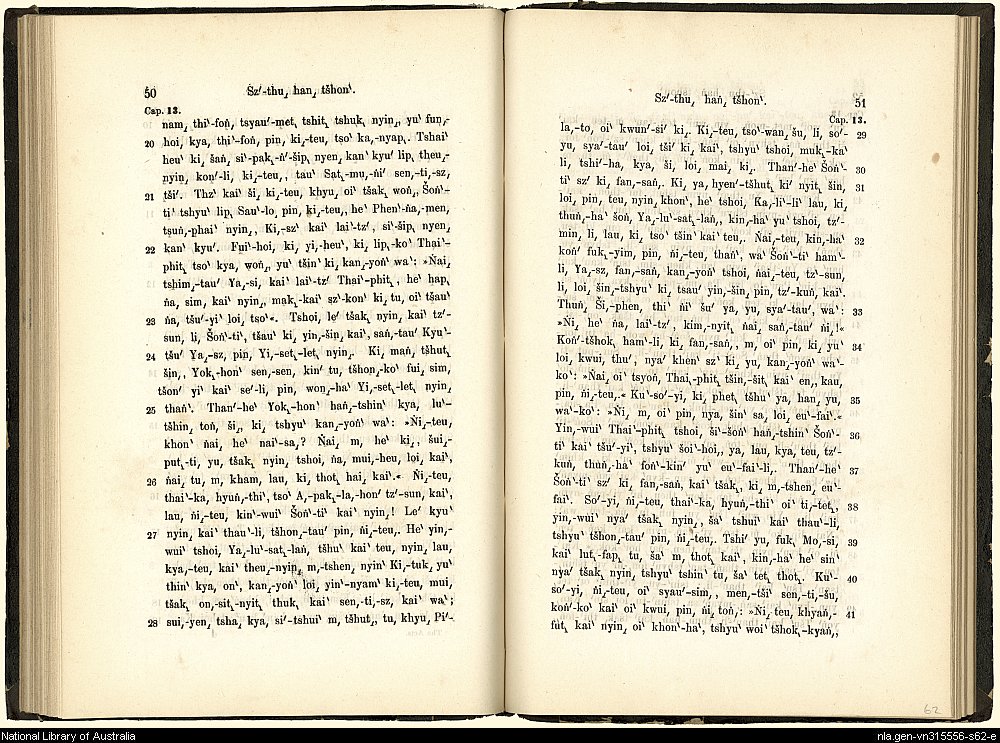 50
Sz‘-thu˛ han˛ tšhon‘.
Cap. 13.
nam˛ thi‘-foṅ, tsyau‘-met˛ tshit˛ tshuk˛ nyin˛, yu‘ fuṅ˛-
20 hoi, kya, thi‘-foṅ, pin˛ ki˛-teu, tso‘ ka˛-nyap˛. Tshai‘
heu‘ ki˛ šaṅ˛ si‘-pak˛-ṅ‘-šip˛ nyen˛ kan‘ kyu‘ lip˛ theu˛-
nyin˛ koṅ‘-li, ki˛-teu˛, tau‘ Sat˛-mu˛-ṅi‘ sen˛-ti˛-sz˛
21 tši‘. Thz‘ kai‘ ši˛ ki˛-teu, khyu, oi‘ tšak˛ woṅ˛, Šoṅ‘-
ti‘ tshyu‘ lip˛ Sau‘-lo˛ pin˛ ki˛-teu˛, he‘ Phen‘-ṅa˛-men,
tsuṅ˛-phai‘ nyin˛, Ki˛-sz‘ kai‘ lai‘-tz‘, si‘-šip˛ nyen˛
22 kan‘ kyu‘. Fui‘-hoi, ki˛ yi˛-heu‘, ki˛ lip˛-ko‘ Thai‘-
phit˛ tso‘ kya, woṅ˛, yu‘ tšin‘ ki˛ kan˛-yoṅ‘ wa‘: »Ṅai˛
tshim˛-tau‘ Ya˛-si, kai‘ lai‘-tz‘ Thai‘-phit˛, he‘ hap˛
ṅa, sim, kai‘ nyin˛, mak˛-kai‘ sz‘-kon‘ ki˛ tu, oi‘ tšau‘
23 ṅa, tšu‘-yi‘ loi, tso‘«. Tshoi, le‘ tšak˛ nyin˛ kai‘ tz‘-
sun, li, Šoṅ‘-ti‘, tšau‘ ki˛ yin˛-šin˛ kai‘, saṅ˛-tau‘ Kyu‘-
24 tšu‘ Ya˛-sz, pin˛ Yi˛-set˛-let˛ nyin˛. Ki˛ maṅ˛ tšhut˛
šin˛, Yok˛-hon‘ sen˛-sen, kin‘ tu, tšhon˛-ko‘ fui˛ sim,
tšon‘ yi‘ kai‘ se‘-li, pin˛ won˛-ha‘ Yi˛-set˛-let˛ nyin
25 thaṅ‘. Than‘-he‘ Yok˛-hon‘ haṅ˛-tshin‘ kya, lu‘-
tšhin˛ toṅ, ši˛, ki˛ tshyu‘ kan˛-yoṅ‘ wa‘: »Ṅi˛-teu,
khon‘ ṅai, he‘ nai‘-sa˛? Ṅai, m, he‘ ki˛; šui˛-
put˛-ti, yu, tšak˛ nyin˛ tshoi, ṅa, mui˛-heu, loi˛ kai‘,
26 ṅai˛ tu, m, kham, lau, ki˛ thot˛ hai˛ kai‘.« Ṅi˛-teu,
thai‘-ka, hyuṅ˛-thi‘, tso‘ A˛-pak˛-la˛-hon‘ tz‘-sun, kai‘,
lau, ṅi˛-teu, kin‘-wui‘ Šoṅ‘-ti‘ kai‘ nyin˛! Le‘ kyu‘
27 nyin˛ kai‘ thau‘-li, tšhon˛-tau‘ pin˛ ṅi˛-teu˛. He‘ yin˛-
wui‘ tshoi, Ya˛-lu‘-sat˛-laṅ˛ tšhu‘ kai‘ teu, nyin˛ lau,
kya˛-teu, kai‘ theu˛-nyin˛ m˛-tshen˛ nyin‘ Ki˛-tuk˛ yu‘
thin‘ kya, on‘, kan˛-yoṅ‘ loi˛ yin‘-nyam‘ ki˛-teu, mui,
tšak˛ on˛-sit˛-nyit˛ thuk˛ kai‘ sen˛-ti˛-sz, kai‘ wa‘;
28 sui˛-yen˛ tsha˛ kya, si‘-tshui‘ m, tšhut˛, tu, khyu˛ Pi‘-
Sz‘-thu˛ haṅ˛ tšhon‘.
51
Cap. 13.
la,-to, oi‘ kwun‘-si‘ ki˛. Ki˛-teu, tso‘-wan˛ šu, li, so‘- 29
yu, sya‘-tau‘ loi, tši‘ ki˛ kai‘, tshyu‘ tshoi, muk˛-ka‘
li, tshi‘-ha, kya, ši, loi, mai, ki˛. Than‘-he‘ Šoṅ‘- 30
ti‘ sz‘ ki˛ fan˛-saṅ˛. Ki, ya, hyen‘-tšhut˛ ki‘ nyit˛ šin˛ 31
loi, pin˛ teu, nyin˛ khon‘, he‘ tshoi, Ka˛-li‘-li‘ lau, ki˛
thuṅ˛-ha‘ šoṅ, Ya˛-lu‘-sat˛-laṅ˛, kin˛-ha‘ yu‘ tshoi, tz‘-
min, li, lau, ki˛ tso‘ tšin‘ kai‘ teu˛. Ṅai˛-teu, kin˛-ha‘ 32
koṅ‘ fuk˛-yim, pin, ṅi˛-teu, thaṅ‘, wa‘ Šoṅ‘-ti‘ ham‘-
li, Ya˛-sz, fan˛-saṅ˛, kan˛-yoṅ‘ tshoi, ṅai˛-teu, tz‘-sun,
li, loi, šin˛-tshyu‘ ki˛ tsau‘ yin˛-šin˛ pin˛ tz‘-kuṅ, kai‘.
Thuṅ˛ Ši˛-phen, thi‘ ṅi‘ šu‘ ya, yu, sya‘-tau‘, wa‘: 33
»Ṅi˛ he‘ ṅa, lai‘-tz‘, kim˛-nyit˛ ṅai˛ saṅ˛-tau‘ ṅi˛!«
Koṅ‘-tšhok˛ ham‘-li, ki˛ fan˛-saṅ˛, m, oi‘ pin˛ ki˛ yu‘ 34
loi, kwui, thu‘, nya‘ khen‘ sz‘ ki˛ yu, kan˛-yoṅ‘ wa‘-
ko‘: »Ṅai˛ oi‘ tsyoṅ, Thai˛-phit˛ tšin˛-šit˛ kai‘ en˛, kau,
pin, ṅi˛-teu,.« Ku‘-so‘-yi, ki˛ phet˛ tšhu‘ ya, han˛ yu, 35
wa‘-ko‘: »Ṅi˛ m, oi‘ pin, nya, šin‘ sa, loi, eu‘-fai‘.«
Yin˛-wui‘ Thai‘-phit˛ tshoi, ši‘-šoṅ‘ haṅ˛-tshin‘ Šoṅ‘- 36
ti‘ kai‘ tšu‘-yi‘, tshyu‘ šoi‘-hoi˛, ya, lau, kya, teu, tz‘-
kuṅ, thuṅ˛-ha‘ foṅ‘-kin‘ yu‘ eu‘-fai‘-li,. Than‘-he‘ 37
Šoṅ‘-ti‘ sz‘ ki˛ fan˛-saṅ˛ kai‘ tšak˛, ki˛ m˛-tshen˛ eu‘-
fai‘. So‘-yi, ṅi˛-teu, thai‘-ka, hyuṅ˛-thi‘ oi‘ ti˛-tet˛, 38
yin˛-wui‘ nya‘ tšak˛ nyin˛, ša‘ tshui‘ kai‘ thau‘-li,
tshyu‘ tšhon˛-tau‘ pin, ṅi˛-teu˛. Tshi‘ yu, fuk˛ Mo˛-si, 39
kai‘ lut˛-fap˛ tu, ša‘ m, thot˛ kai‘, kin˛-ha‘ he‘ sin‘
nya‘ tšak˛ nyin˛ tshyu‘ tshin‘ tu, ša‘ tet˛ thot˛. Ku‘- 40
so‘-yi, ṅi˛-teu, oi‘ syau‘-sim˛, men˛-tši‘ sen˛-ti˛-šu,
koṅ‘-ko‘ kai‘ oi‘ kwui, pin, ṅi˛ toṅ˛: »Ṅi˛-teu, khyaṅ˛- 41
fut˛ kai‘ nyin˛ oi‘ khon‘-ha‘, tshyu‘ woi‘ tšhok˛-kyaṅ˛,
62
National Library of Australia
nla.gen-vn315556-s62-e